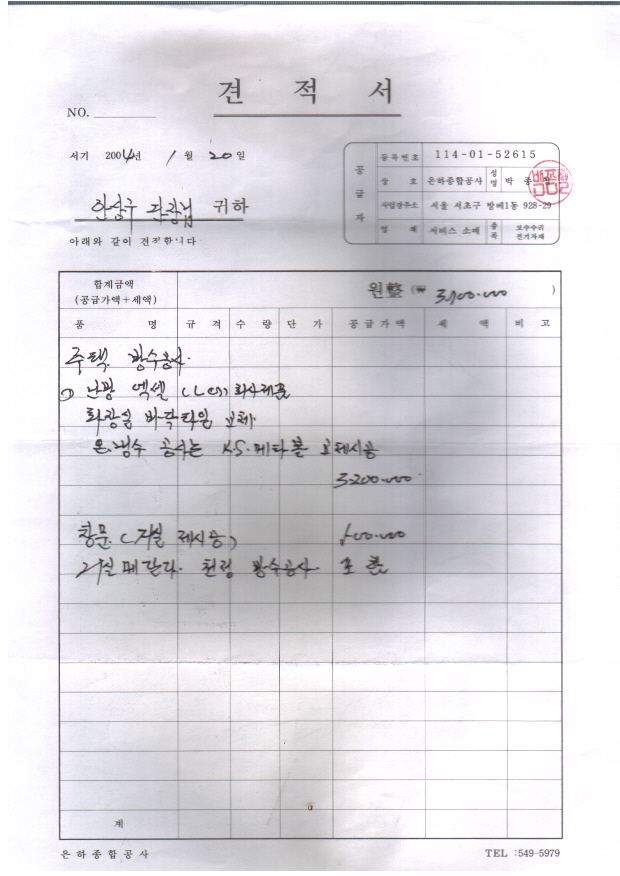 견 적 서
NO.
서기 2004년 1월 20일
귀하
아래와 같이 견적합니다
공급자
등록번호 114-01-52615
상 호 은하종합공사 성명 박 종
사업장주소 서울 서초구 방배1동 928-29
업 태 서비스 소매 종목 보수수리 전기자재
합계금액
(공급가액+세액)
원整 (₩ )
품 명 규 격 수 량 단 가 공 급 가 액 세 액 비 고
주택 방수공사
1) 난방 엑셀 (LG) 화사제품
화장실 바닥타일 교체
온.냉수 공사는 K.S.메타폴 교체시공
3.200.000
창문 (거실 재시공)
거실 베란다. 천정 방수공사. 포함
계
은하종합공사
TEL :549-5979